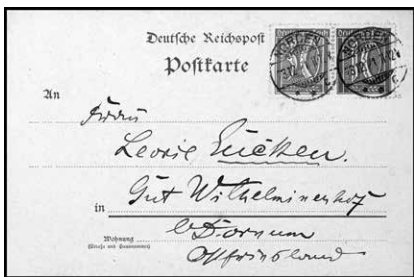 Deutsche Reichspost
Postkarte
NORDEN
NORDEN
An
Frau
Leonie Eucken.
in Gut Wilhelminenhof
b/Dornum
Wohnung
(Straße und Hausnummer)
Ostfriesland